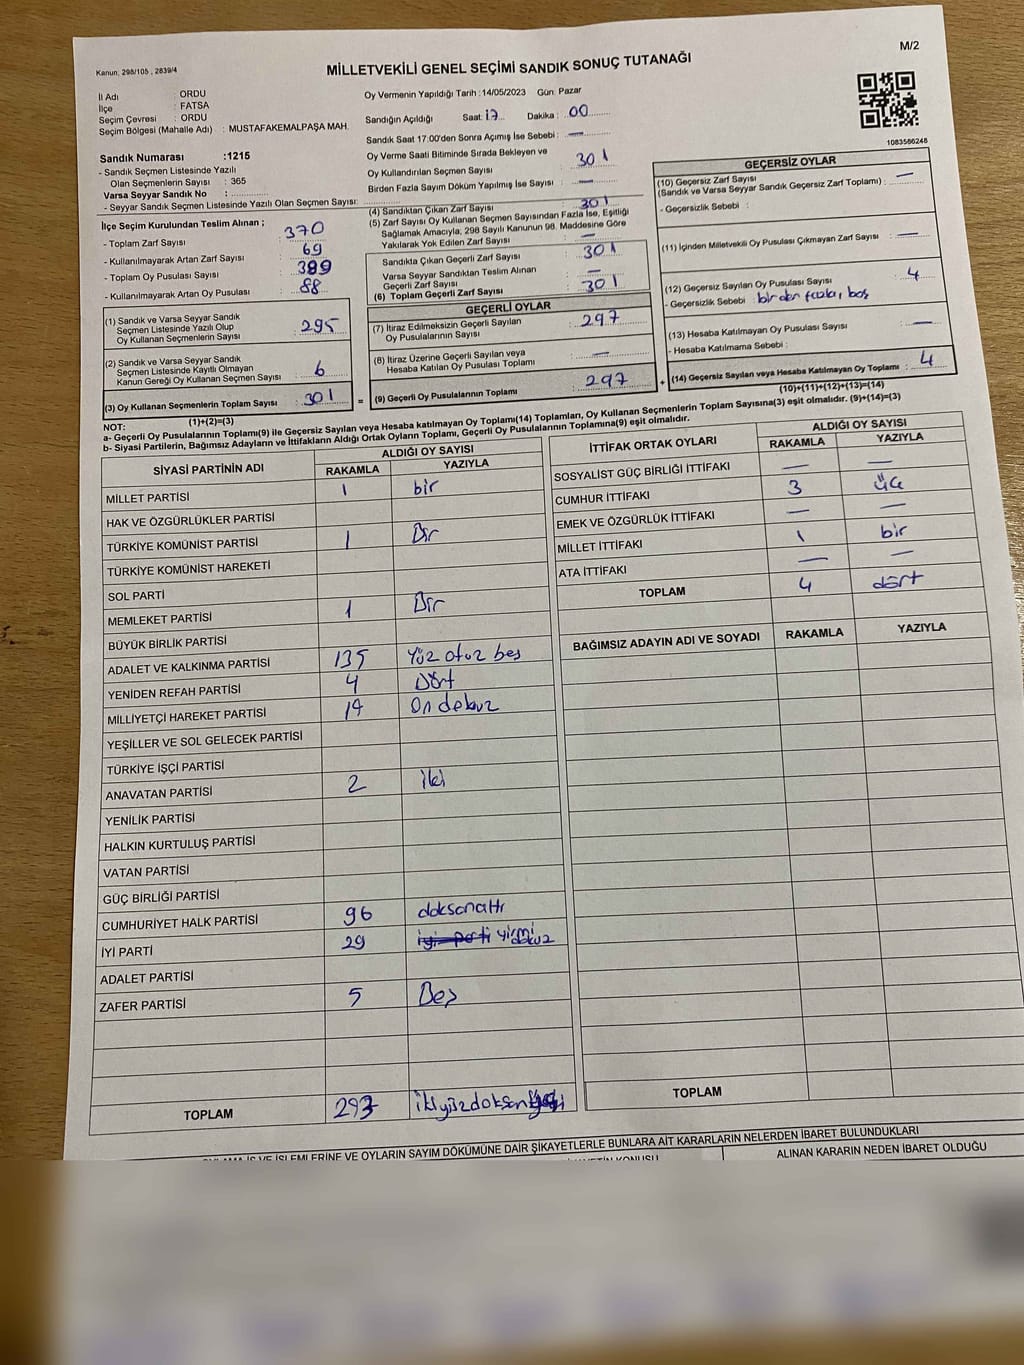 M/2
Kanun: 298/105 , 2839/4
MİLLETVEKİLİ GENEL SEÇİMİ SANDIK SONUÇ TUTANAĞI
İl Adı : ORDU
İlçe : FATSA
Seçim Çevresi : ORDU
Seçim Bölgesi (Mahalle Adı) : MUSTAFAKEMALPAŞA MAH.
Sandık Numarası :1215
- Sandık Seçmen Listesinde Yazılı
Olan Seçmenlerin Sayısı : 365
Varsa Seyyar Sandık No :
- Seyyar Sandık Seçmen Listesinde Yazılı Olan Seçmen Sayısı:
Oy Vermenin Yapıldığı Tarih :14/05/2023 Gün: Pazar
Sandığın Açıldığı Saat: 17 Dakika : 00
Sandık Saat 17:00'den Sonra Açımış İse Sebebi : —
Oy Verme Saati Bitiminde Sırada Bekleyen ve
Oy Kullandırılan Seçmen Sayısı : 301
Birden Fazla Sayım Döküm Yapılmış İse Sayısı : —
1083566248
İlçe Seçim Kurulundan Teslim Alınan ;
- Toplam Zarf Sayısı : 370
- Kullanılmayarak Artan Zarf Sayısı : 69
- Toplam Oy Pusulası Sayısı : 389
- Kullanılmayarak Artan Oy Pusulası : 88
(1) Sandık ve Varsa Seyyar Sandık
Seçmen Listesinde Yazılı Olup
Oy Kullanan Seçmenlerin Sayısı : 295
(2) Sandık ve Varsa Seyyar Sandık
Seçmen Listesinde Kayıtlı Olmayan
Kanun Gereği Oy Kullanan Seçmen Sayısı : 6
(3) Oy Kullanan Seçmenlerin Toplam Sayısı : 301
(1)+(2)=(3)
(4) Sandıktan Çıkan Zarf Sayısı : 301
(5) Zarf Sayısı Oy Kullanan Seçmen Sayısından Fazla İse, Eşitliği
Sağlamak Amacıyla, 298 Sayılı Kanunun 98. Maddesine Göre
Yakılarak Yok Edilen Zarf Sayısı : —
Sandıkta Çıkan Geçerli Zarf Sayısı : 301
Varsa Seyyar Sandıktan Teslim Alınan
Geçerli Zarf Sayısı : —
(6) Toplam Geçerli Zarf Sayısı : 301
GEÇERLİ OYLAR
(7) İtiraz Edilmeksizin Geçerli Sayılan
Oy Pusulalarının Sayısı : 297
(8) İtiraz Üzerine Geçerli Sayılan veya
Hesaba Katılan Oy Pusulası Toplamı : —
= (9) Geçerli Oy Pusulalarının Toplamı : 297
GEÇERSİZ OYLAR
(10) Geçersiz Zarf Sayısı
(Sandık ve Varsa Seyyar Sandık Geçersiz Zarf Toplamı) : —
- Geçersizlik Sebebi :
(11) İçinden Milletvekili Oy Pusulası Çıkmayan Zarf Sayısı : —
(12) Geçersiz Sayılan Oy Pusulası Sayısı : 4
- Geçersizlik Sebebi : birden fazla, boş
(13) Hesaba Katılmayan Oy Pusulası Sayısı : —
- Hesaba Katılmama Sebebi :
+ (14) Geçersiz Sayılan veya Hesaba Katılmayan Oy Toplamı : 4
(10)+(11)+(12)+(13)=(14)
NOT:
a- Geçerli Oy Pusulalarının Toplamı(9) ile Geçersiz Sayılan veya Hesaba katılmayan Oy Toplamı(14) Toplamları, Oy Kullanan Seçmenlerin Toplam Sayısına(3) eşit olmalıdır. (9)+(14)=(3)
b- Siyasi Partilerin, Bağımsız Adayların ve İttifakların Aldığı Ortak Oyların Toplamı, Geçerli Oy Pusulalarının Toplamına(9) eşit olmalıdır.
SİYASİ PARTİNİN ADI ALDIĞI OY SAYISI
RAKAMLA YAZIYLA
MİLLET PARTİSİ 1 bir
HAK VE ÖZGÜRLÜKLER PARTİSİ
TÜRKİYE KOMÜNİST PARTİSİ 1 Bir
TÜRKİYE KOMÜNİST HAREKETİ
SOL PARTİ
MEMLEKET PARTİSİ 1 Bir
BÜYÜK BİRLİK PARTİSİ
ADALET VE KALKINMA PARTİSİ 135 Yüz otuz beş
YENİDEN REFAH PARTİSİ 4 Dört
MİLLİYETÇİ HAREKET PARTİSİ 19 On dokuz
YEŞİLLER VE SOL GELECEK PARTİSİ
TÜRKİYE İŞÇİ PARTİSİ
ANAVATAN PARTİSİ 2 iki
YENİLİK PARTİSİ
HALKIN KURTULUŞ PARTİSİ
VATAN PARTİSİ
GÜÇ BİRLİĞİ PARTİSİ
CUMHURİYET HALK PARTİSİ 96 doksanaltı
İYİ PARTİ 29 iyi parti yirmi dokuz
ADALET PARTİSİ
ZAFER PARTİSİ 5 Beş
TOPLAM 293 ikiyüzdoksan
İTTİFAK ORTAK OYLARI ALDIĞI OY SAYISI
RAKAMLA YAZIYLA
SOSYALİST GÜÇ BİRLİĞİ İTTİFAKI — —
CUMHUR İTTİFAKI 3 üç
EMEK VE ÖZGÜRLÜK İTTİFAKI — —
MİLLET İTTİFAKI 1 bir
ATA İTTİFAKI — —
TOPLAM 4 dört
BAĞIMSIZ ADAYIN ADI VE SOYADI RAKAMLA YAZIYLA
TOPLAM
VE İŞLEMLERİNE VE OYLARIN SAYIM DÖKÜMÜNE DAİR ŞİKAYETLERLE BUNLARA AİT KARARLARIN NELERDEN İBARET BULUNDUKLARI
ALINAN KARARIN NEDEN İBARET OLDUĞU